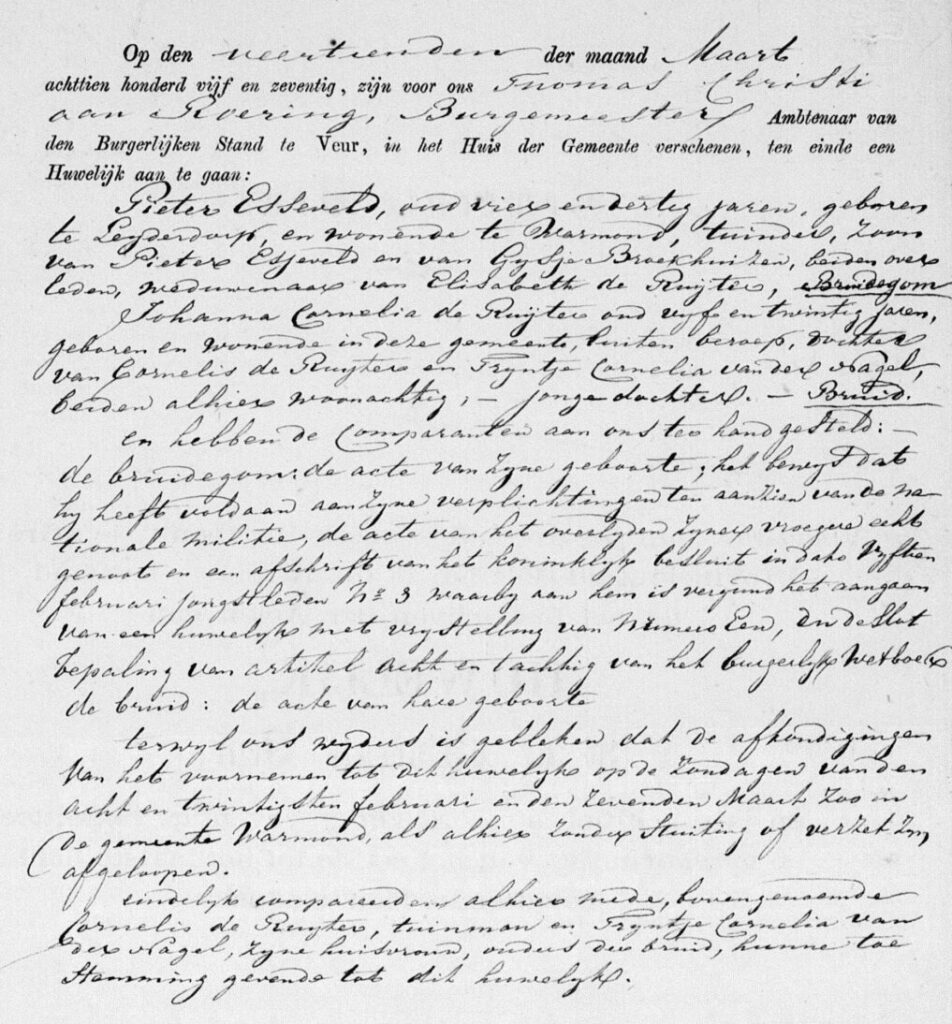 Op den veertienden der maand Maart
achttien honderd vijf en zeventig, zijn voor ons Thomas Christi
aan Roering, Burgemeester Ambtenaar van
den Burgerlijken Stand te Veur, in het Huis der Gemeente verschenen, ten einde een
Huwelijk aan te gaan:
Pieter Esseveld, oud vier en dertig jaren, geboren
te Leyderdorp, en wonende te Warmond, tuinder, zoon
van Pieter Esseveld en van Gysje Broekhuizen, beiden over
leden, weduwenaar van Elisabeth de Ruijter, Bruidegom
Johanna Cornelia de Ruijter oud vyf en twintig jaren,
geboren en wonende in deze gemeente, buiten beroep, dochter
van Cornelis de Ruyter en Tryntje Cornelia van der Nagel,
beiden alhier woonachtig, – jonge dochter. – Bruid.
en hebben de Comparanten aan ons ter hand gesteld: –
de bruidegom: de acte van zyne geboorte; het bewys dat
hy heeft voldaan aan zyne verplichtingen ten aanzien van de na
tionale militie, de acte van het overlyden zyner vroegere echt
genoot en een afschrift van het koninklyk besluit in dato Vyftien
februari jongstleden No 3 waarby aan hem is vergund het aangaan
van een huwelyk met vrystelling van Numero Een, en de Slot
bepaling van artikel acht en tachtig van het burgerlyk Wetboek
de bruid: de acte van hare geboorte
terwyl ons wyders is gebleken dat de afkondigingen
van het voornemen tot dit huwelyk op de Zondagen van den
acht en twintigsten februari en den zevenden Maart zoo in
de gemeente Warmond, als alhier zonder Stuiting of verzet zyn
afgeloopen.
eindelyk compareerden alhier mede, bovengenoemde
Cornelis de Ruyter, tuinman en Tryntje Cornelia van
der Nagel, zyne huisvrouw, ouders der bruid, hunne toe
Stemming gevende tot dit huwelyk.